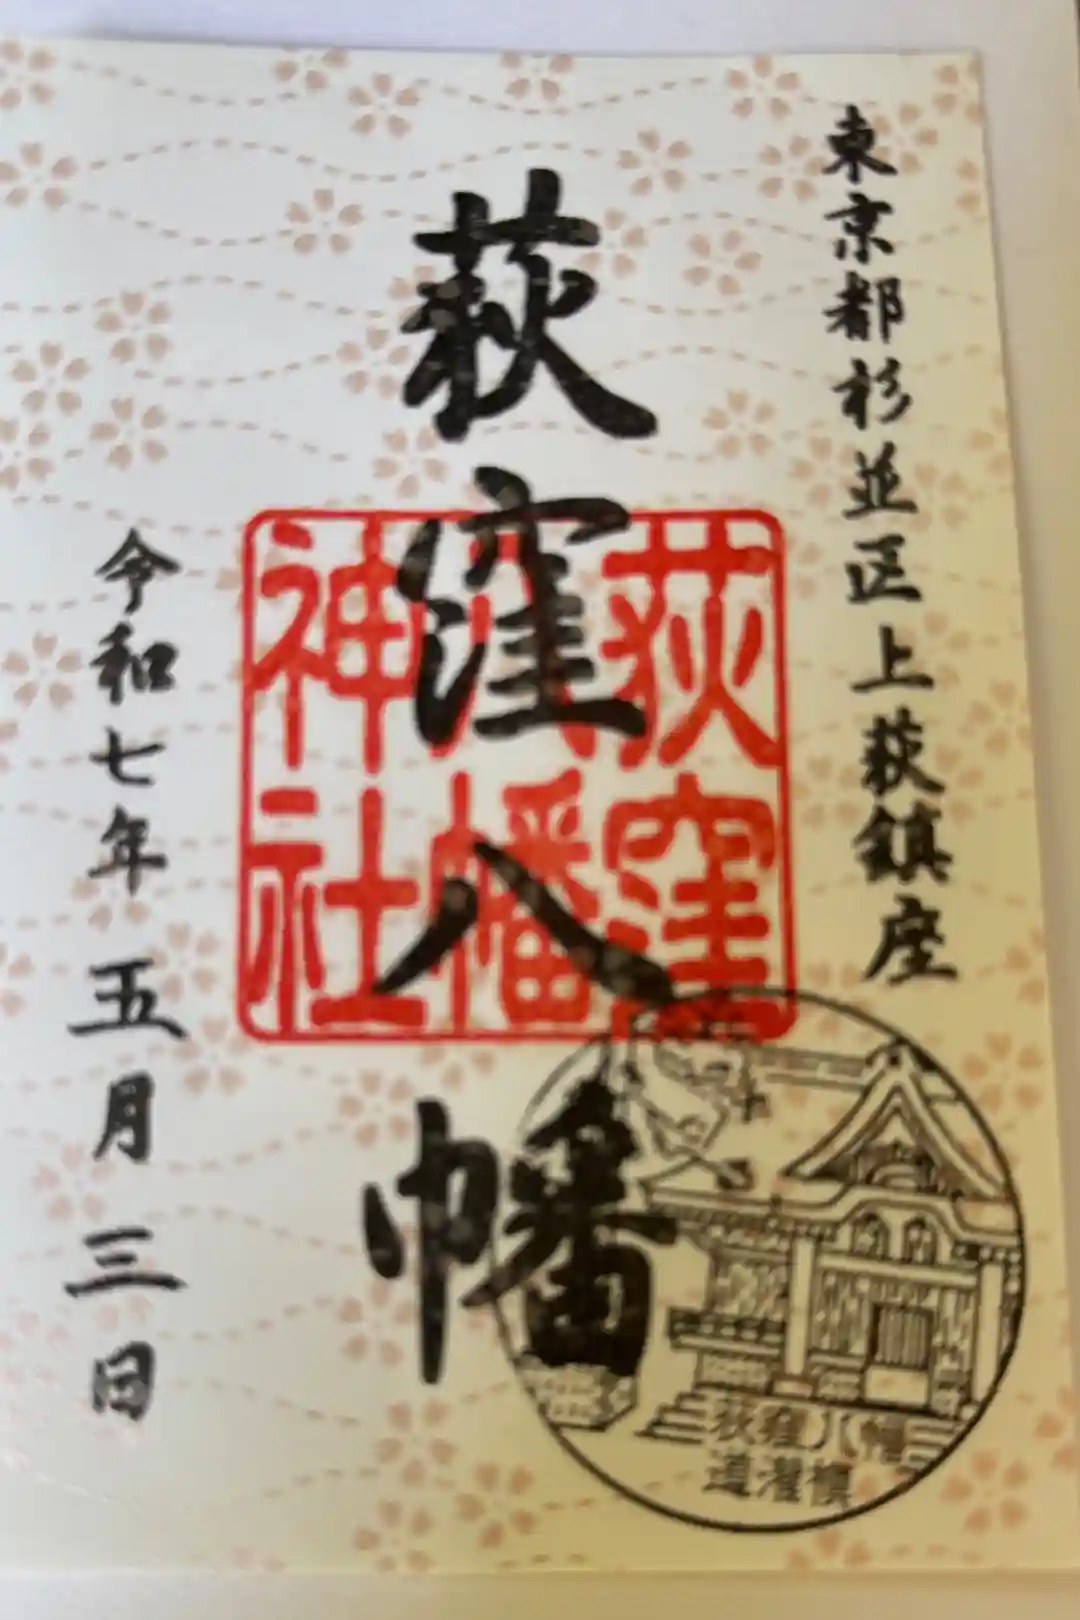 東京都杉並区上荻鎮座
荻窪八幡
荻窪
八幡
神社
令和七年五月三日
荻窪八幡
道灌槙